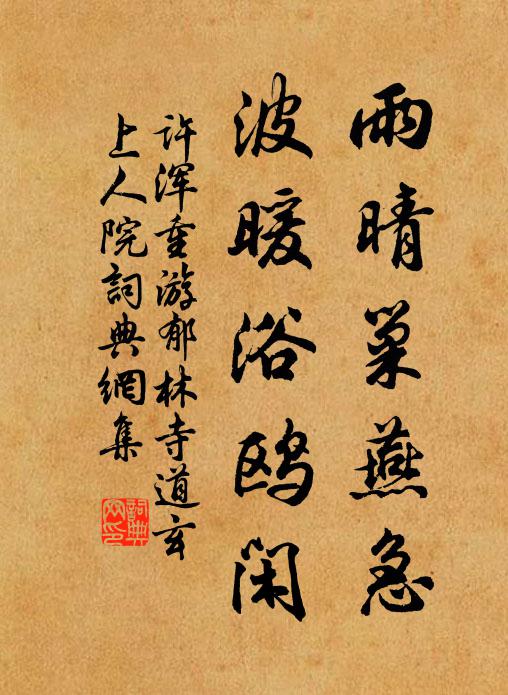 雨晴巢燕急
波暖浴鸥闲
许浑重游郁林寺道玄
上人院詞典網集
詞典网印